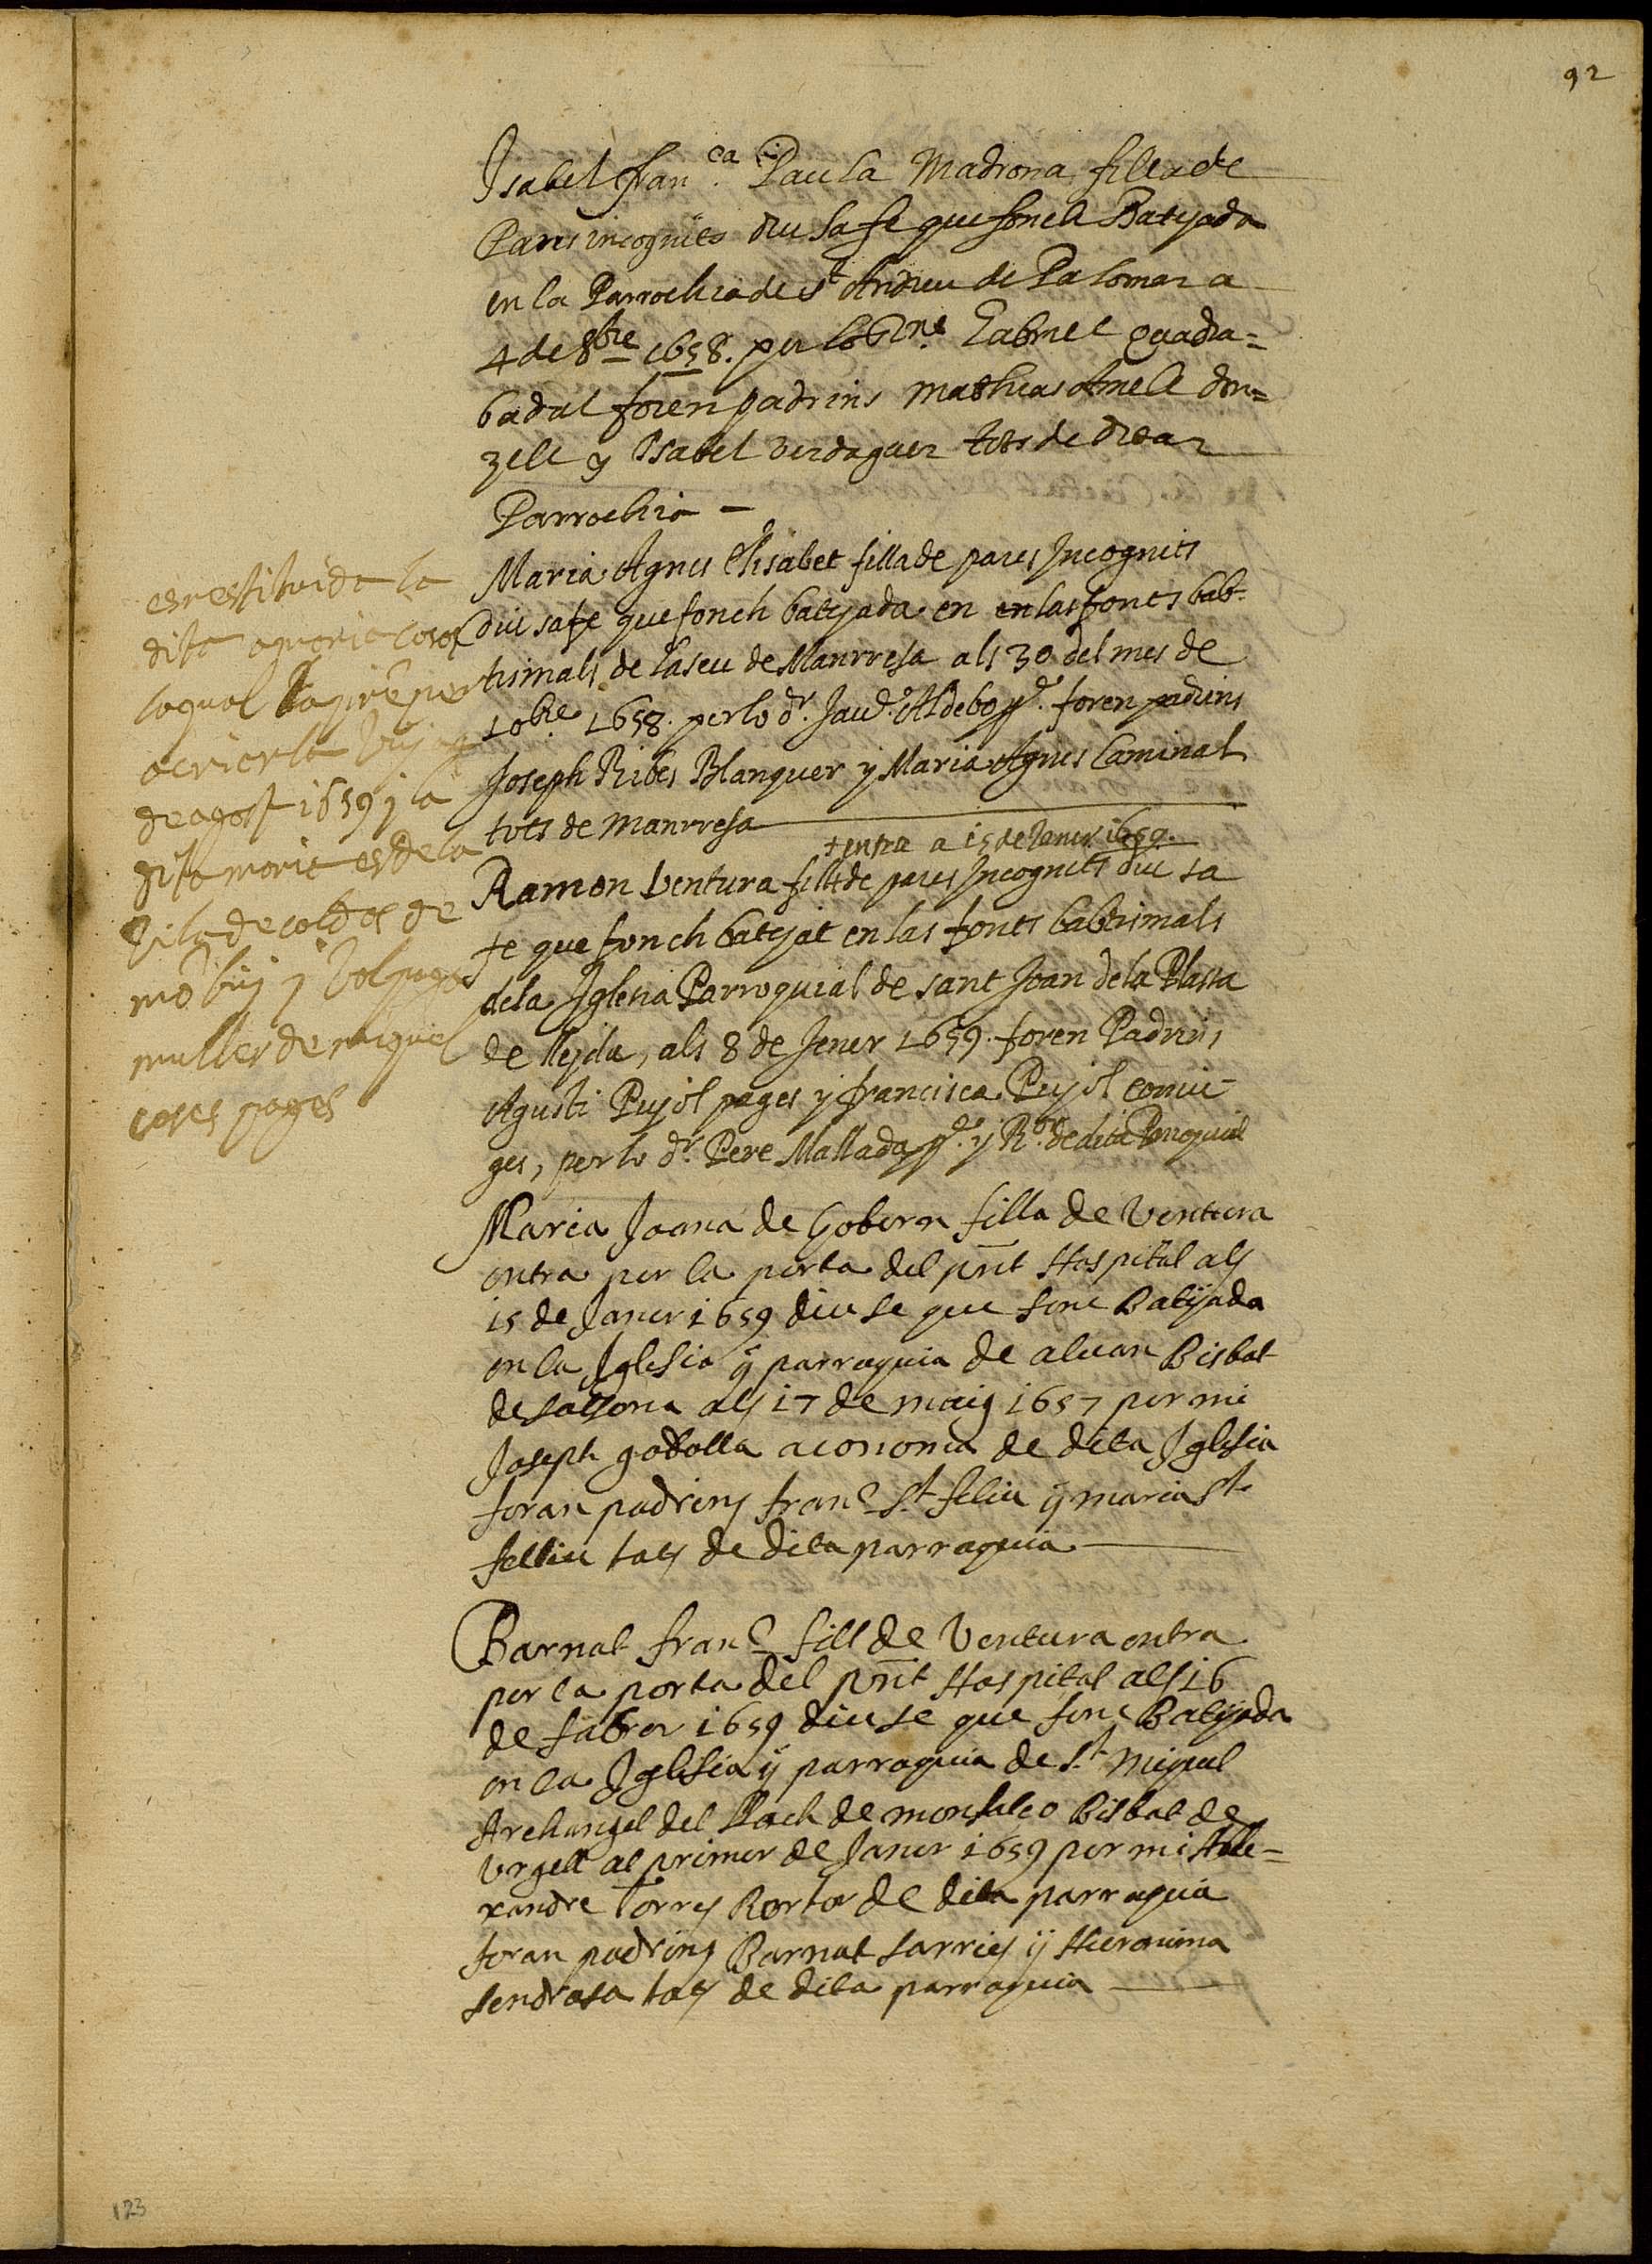 92
Isabel fran.ca Paula Madrona filla de
Pares incognits diu sa fe que fonch Batejada
en la Parrochia de st Andreu de Palomar a
4 de 8bre 1658. per lo Gabriel
badal foren padrins Mathias Amell don=
zell y Isabel verdaguer tots de dita
Parrochia –
Maria Agnes Elisabet filla de pares Incognits
diu sa fe que fonch batejada en en las fonts bab-
tismals de la seu de Manrresa als 30 del mes de
10bre 1658. per lo dr. Jau.e foren padrins
Joseph Ribes Blanquer y Maria Agnes Caminal
tots de Manrresa
+ entra a 15 de Janer 1659.
Ramon Ventura fill de pares Incognits diu sa
fe que fonch batejat en las fonts babtismals
de la Iglesia Parroquial de sant Joan de la Plassa
de lleyda, als 8 de Jener 1659. foren Padrins
Agusti Pujol pages y francisca Pujol conju-
ges, per lo dr. Pere Mallada y de dita Parroquial
Maria Joana de Gobern filla de Ventura
entra per la porta del pnt Hospital als
15 de Janer 1659 diu se que fonc Batijada
en la Iglesia ÿ parraquia de aluan Bisbat
de salsona als 17 de maig 1657 per mi
Joseph godolla aconom de dita Iglesia
foran padrins franc St feliu ÿ maria St
felliu tots de dita parraquia
Barnat franc fill de Ventura entra
per la porta del pnt Hospital als 16
de fabrer 1659 diu se que fonc Batijada
en la Iglesia ÿ parraquia de St Miquel
Archangel del Llach de monfalco Bisbat de
Vrgell al primer de Janer 1659 per mi Ale=
xandre Torres Rector de dita parraquia
foran padrins Barnat sarries ÿ Hieronima
sendrosa tots de dita parraquia
es restituida la
dita maria
la qual per
a criarla
de agost 1659 y la
dita maria es de la
vila de coldes de
mobuy y
muller de miquel
coses pages
123